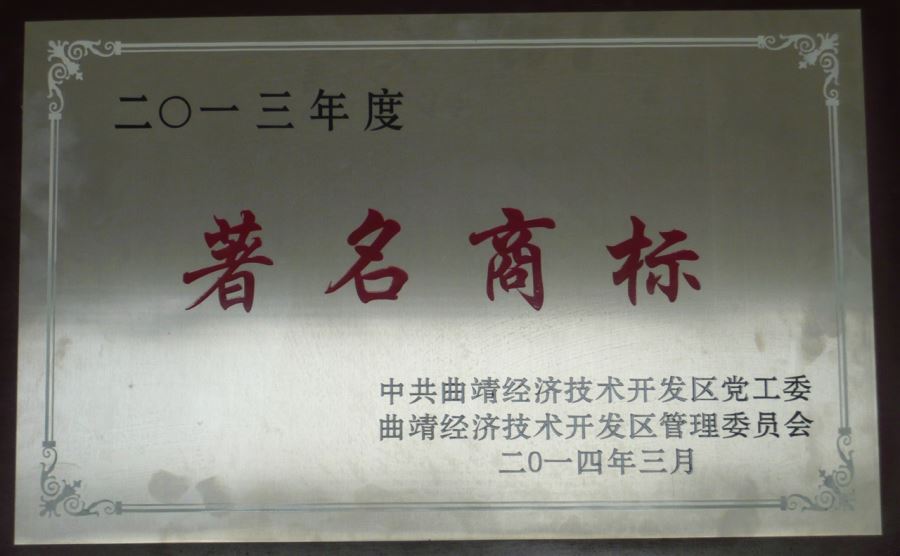 二〇一三年度
著名商标
中共曲靖经济技术开发区党工委
曲靖经济技术开发区管理委员会
二0一四年三月